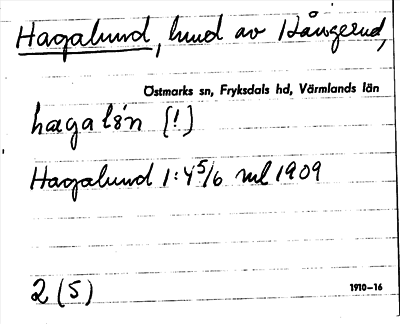 Hagalund, hmd av Kångerud,
Östmarks sn, Fryksdals hd, Värmlands län
hagalön [!]
Hagalund 1:4 5/6 ml 1909
2 (5)
1910–16